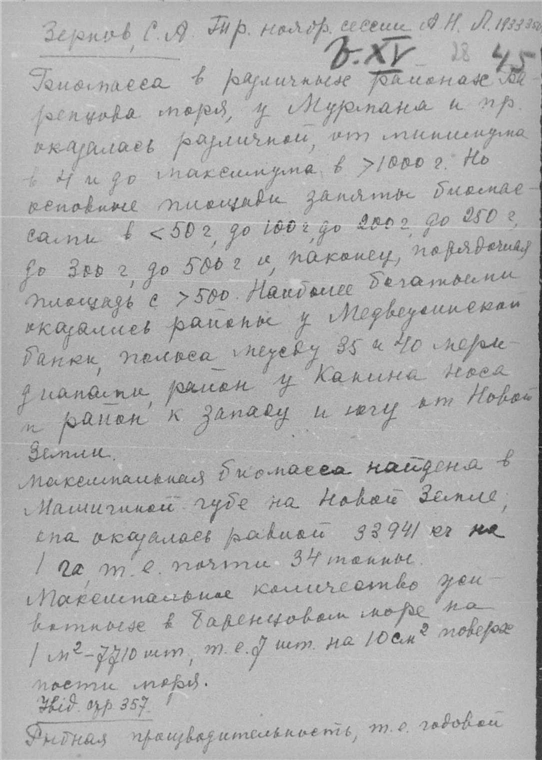 Зернов, С. А. Тр. ноябр. сессии А. Н. Л. 1933
b. XV 28 45
Биомасса в различных районах Ба-
ренцова моря, у Мурмана и пр.
оказалась различной, от минимума
в 4 и до максимума в >1000 г. Но
основные площади заняты биомас-
сами в <50 г, до 100 г, до 200 г, до 250 г,
до 300 г, до 500 г и, наконец, порядочная
площадь с >500. Наиболее богатыми
оказались районы у Медвежинской
банки, полоса между 35 и 40 мери-
дианами, район у Канина Носа
и район к западу и югу от Новой
Земли.
Максимальная биомасса найдена в
губе на Новой Земле,
она оказалась равной 33941 кг на
1 га, т. е. почти 34 тонны.
Максимальное количество жи-
вотных в Баренцовом море на
1 м² – 7710 шт, т. е. 7 шт. на 10 см² поверх
ности моря.
Ibid. стр 357.
Рыбная производительность, т. е. годовой